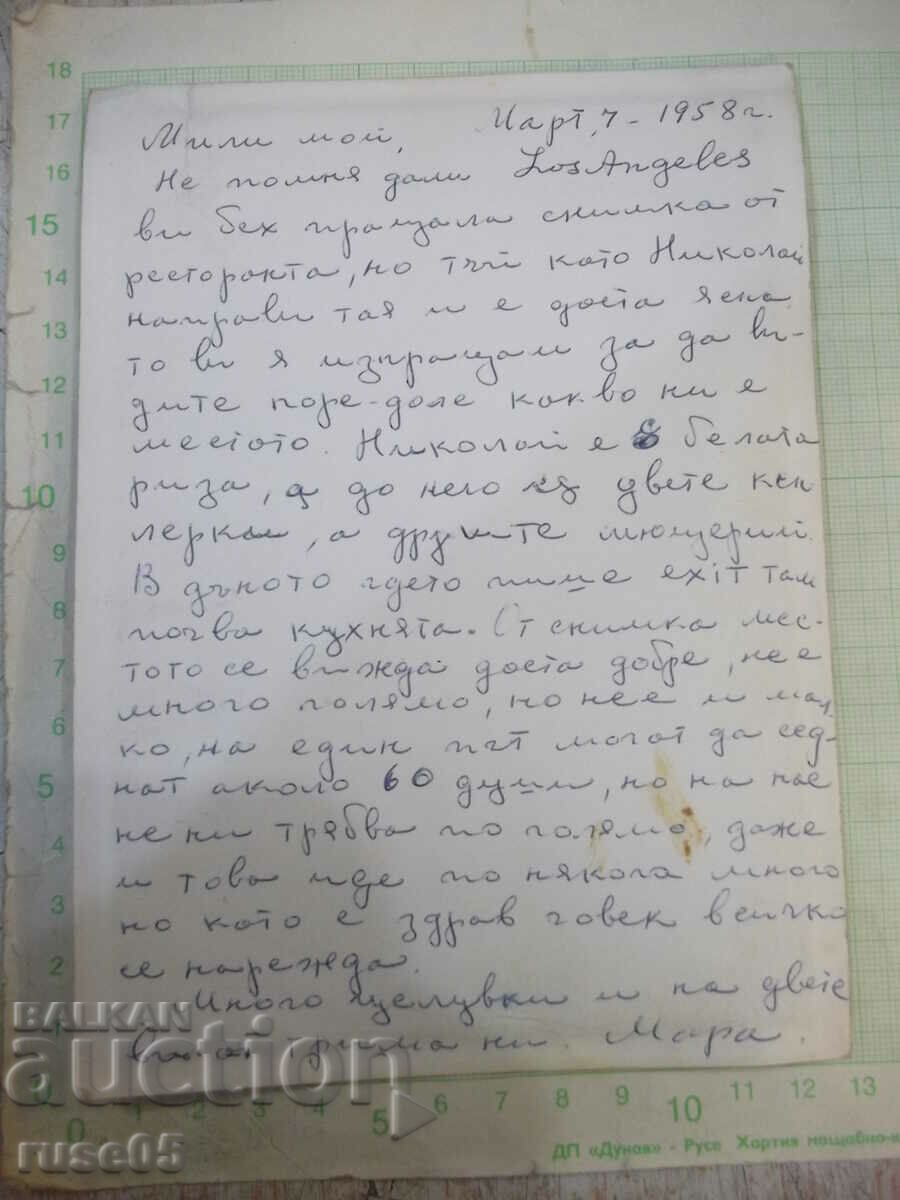 Мили мои, Март, 7 - 1958 г.
Не помня дали Los Angeles
ви бех пращала снимка от
ресторанта, но тъй като Николай
направи тая и е доста ясна
то ви я изпращам за да ви-
дите горе-доле какво ни е
местото. Николай е с белата
риза, а до него са двете кел
нерки, а другите мющерии.
В дъното гдето пише exit там
почва кухнята. От снимка мес-
тото се вижда доста добре, не е
много голямо, но не е и мал
ко, на един път могат да сед-
нат около 60 души, но на нас
не ни трябва по голямо, даже
и това иде по някога много
но като е здрав човек всичко
се нарежда.
Много целувки и на двете
ви от трима ни. Мара.
18
17
16
15
14
13
12
11
10
9
8
7
6
5
4
3
2
1
0
0 1 2 3 4 5 6 7 8 9 10 11 12 13
ДП «Дунав» - Русе Хартия мощабно-
BALKAN
auction
ruse05